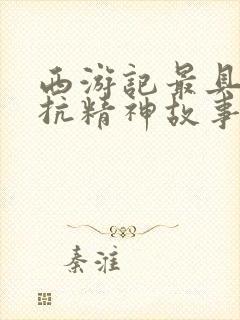 西游記最具
抗精神故事
秦淮